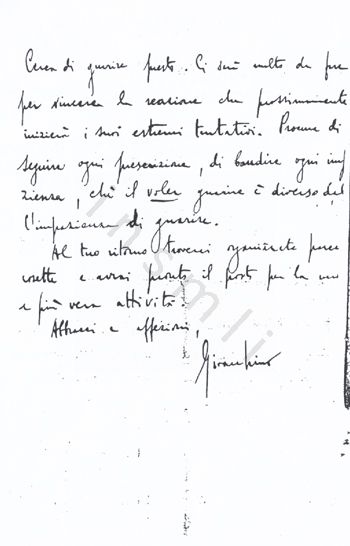 Cerca di guarire presto. Ci sarà molto da fare
per vincere la reazione che prossimamente
inizierà i suoi estremi tentativi. Procura di
seguire ogni prescrizione, di bandire ogni imp
zienza, chè il voler guarire è diverso dal
l'impazienza di guarire.
Al tuo ritorno troverai organizzate parec
cosette e avrai pronto il posto per la
e più vera attività.
Abbracci e affezioni,
insmli